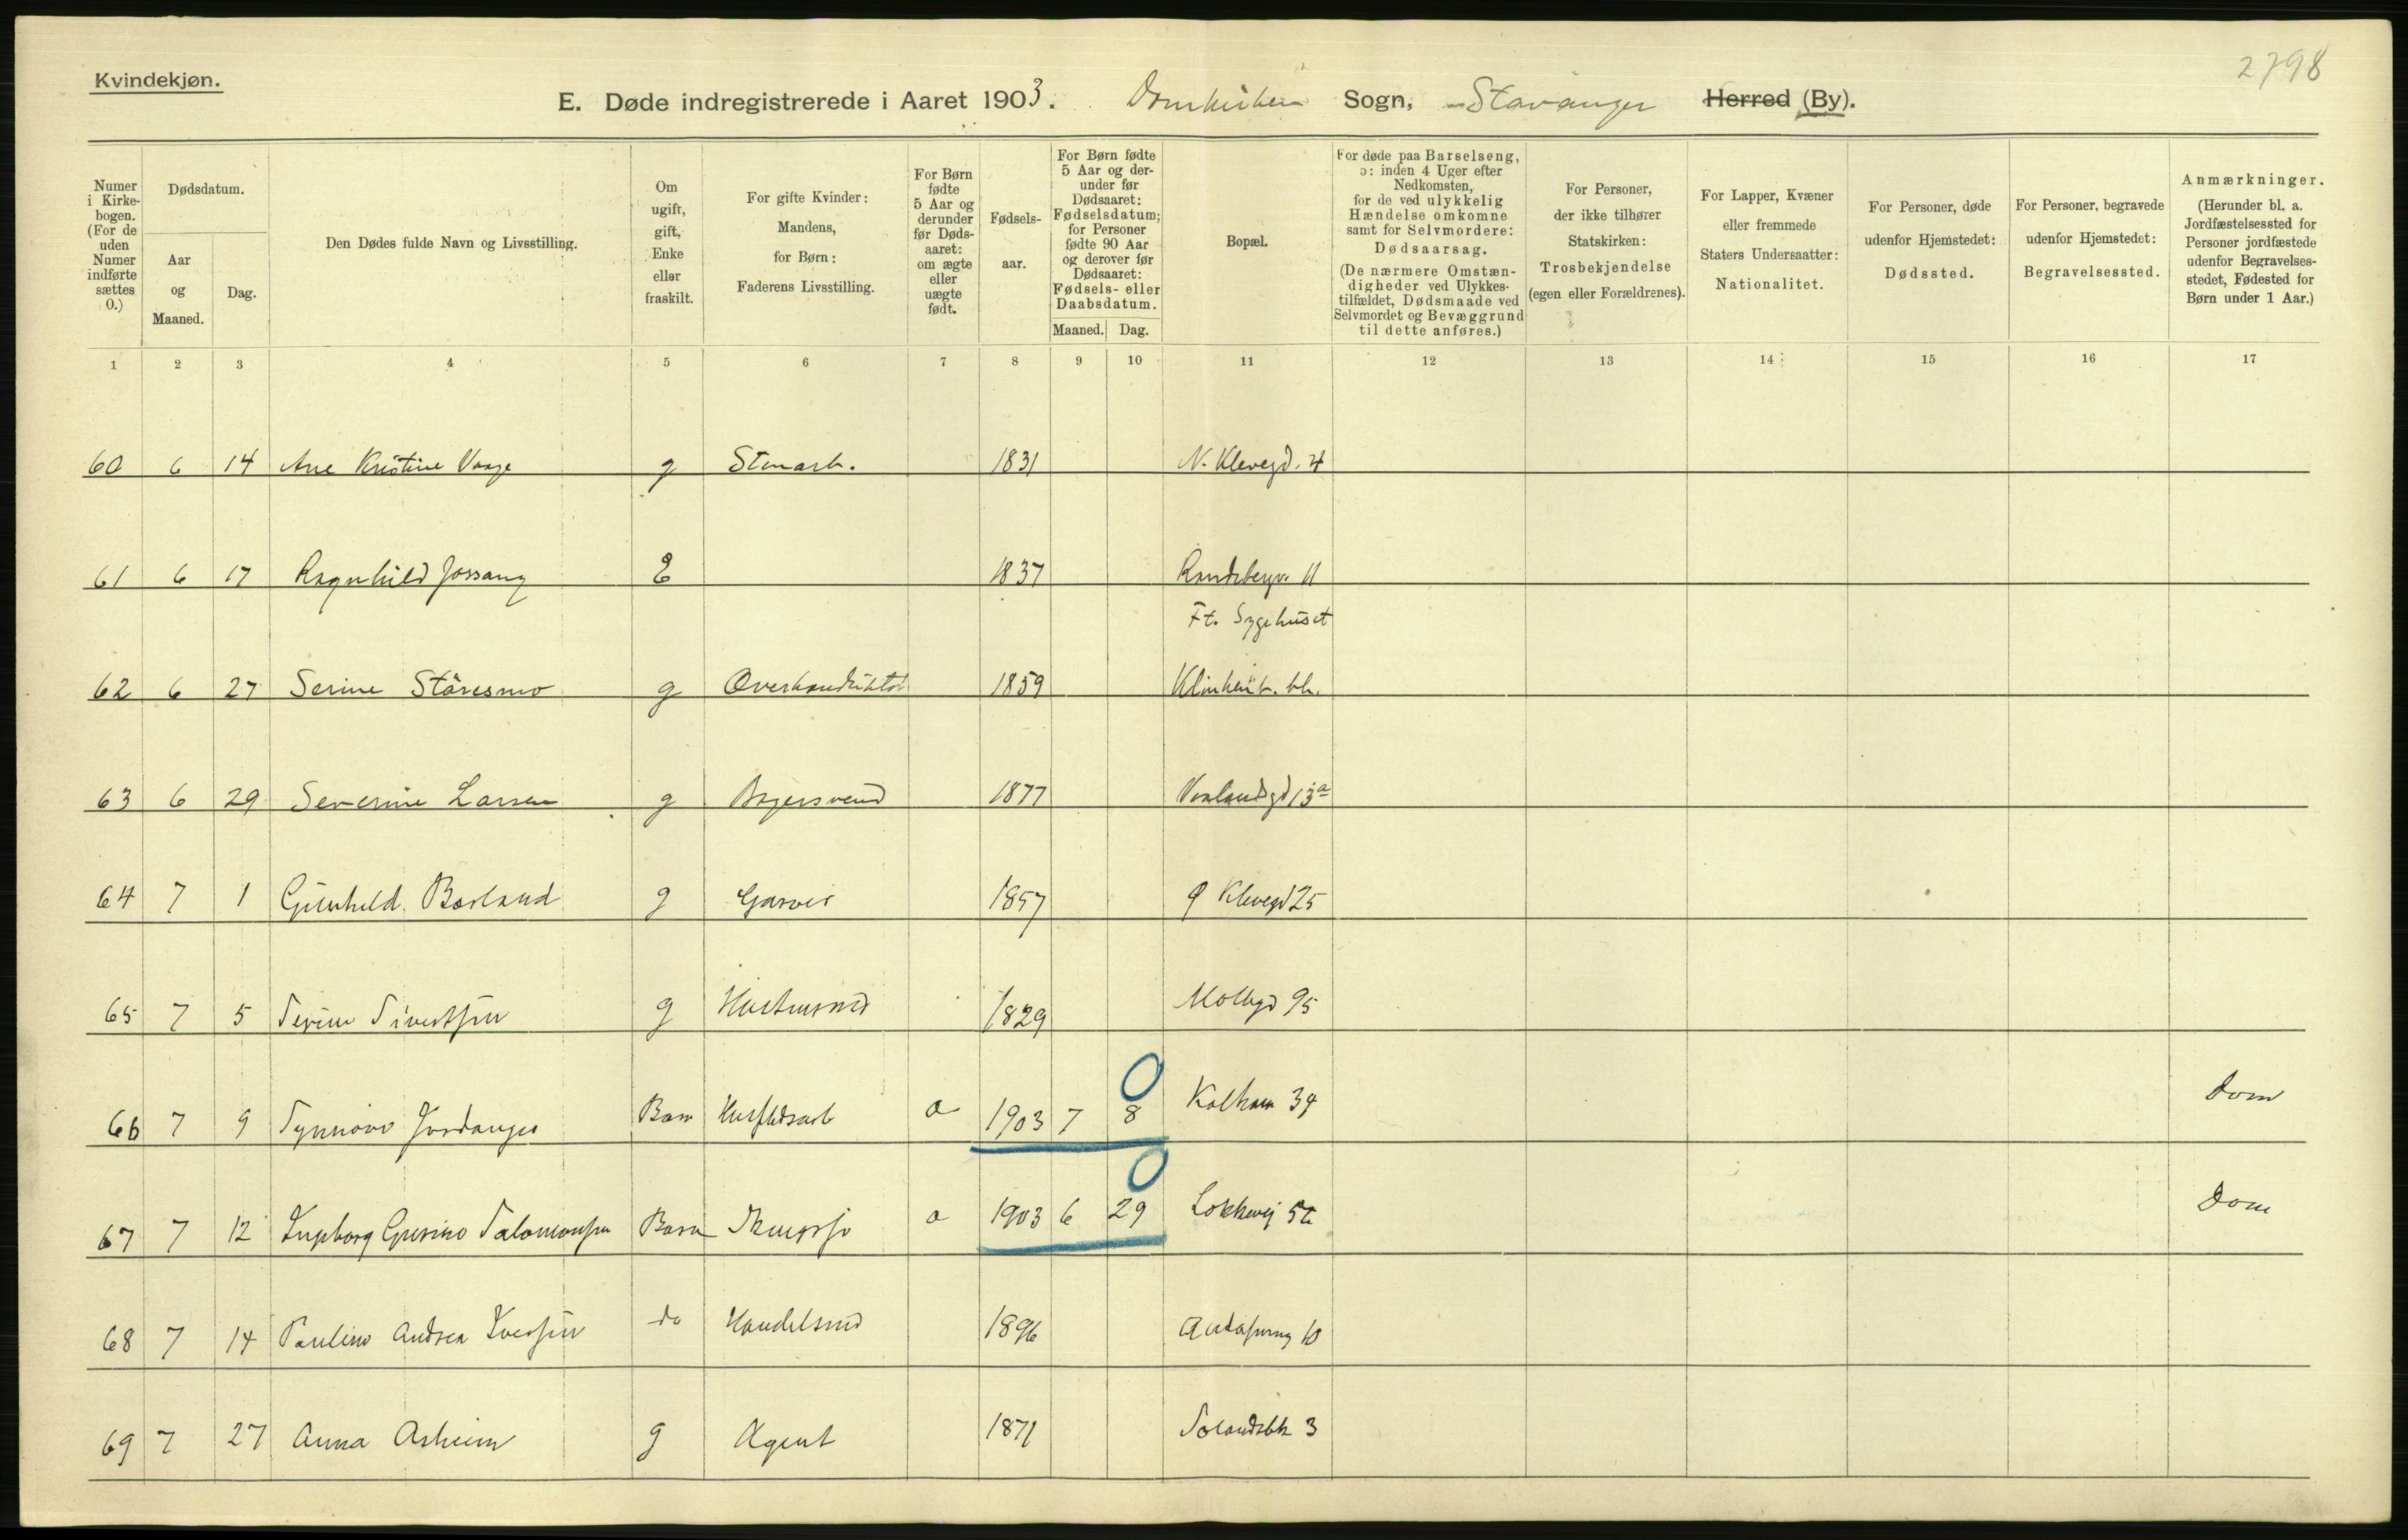 2798
Kvindekjøn.
E. Døde indregistrerede i Aaret 1903. Domkirken Sogn, Stavanger Herred (By).
Numer i Kirkebogen. (For de uden Numer indførte sættes 0.)
Dødsdatum.
Aar og Maaned.
Dag.
Den Dødes fulde Navn og Livsstilling.
Om ugift, gift, Enke eller fraskilt.
For gifte Kvinder: Mandens, for Børn: Faderens Livsstilling.
For Børn fødte 5 Aar og derunder før Dødsaaret: om ægte eller uægte født.
Fødselsaar.
For Børn fødte 5 Aar og derunder før Dødsaaret: Fødselsdatum; for Personer fødte 90 Aar og derover før Dødsaaret: Fødsels- eller Daabsdatum.
Maaned. Dag.
Bopæl.
For døde paa Barselseng, ɔ: inden 4 Uger efter Nedkomsten, for de ved ulykkelig Hændelse omkomne samt for Selvmordere: Dødsaarsag.
(De nærmere Omstændigheder ved Ulykkestilfældet, Dødsmaade ved Selvmordet og Bevæggrund til dette anføres.)
For Personer, der ikke tilhører Statskirken: Trosbekjendelse (egen eller Forældrenes).
For Lapper, Kvæner eller fremmede Staters Undersaatter: Nationalitet.
For Personer, døde udenfor Hjemstedet: Dødssted.
For Personer, begravede udenfor Hjemstedet: Begravelsessted.
Anmærkninger. (Herunder bl. a. Jordfæstelsessted for Personer jordfæstede udenfor Begravelsesstedet, Fødested for Børn under 1 Aar.)
1 2 3 4 5 6 7 8 9 10 11 12 13 14 15 16 17
60 6 14 Ane Kristine Vaage g Stenarb. 1831 N. Klevegd. 4
61 6 17 Ragnhild Jossang E 1837 Randebergv. 11
Ft. Sygehuset
62 6 27 Serine Støresmo g Overkonduktør 1859
63 6 29 Severine Larsen g Bagersvend 1877 Vaalandsgd 13a
64 7 1 Gunhild Børland g Garver 1857 Ø Klevegd 25
65 7 5 Serine Sivertsen g 1829 Møllegd 95
66 7 9 Synnøve Barn a 1903 7 8 34 Dom
67 7 12 Ingborg Salomonsen Barn a 1903 6 29 Løkkevej Dom
68 7 14 Pauline Andrea Iversen do Handelsmd 1896 10
69 7 27 Anna Asheim g Agent 1871 3